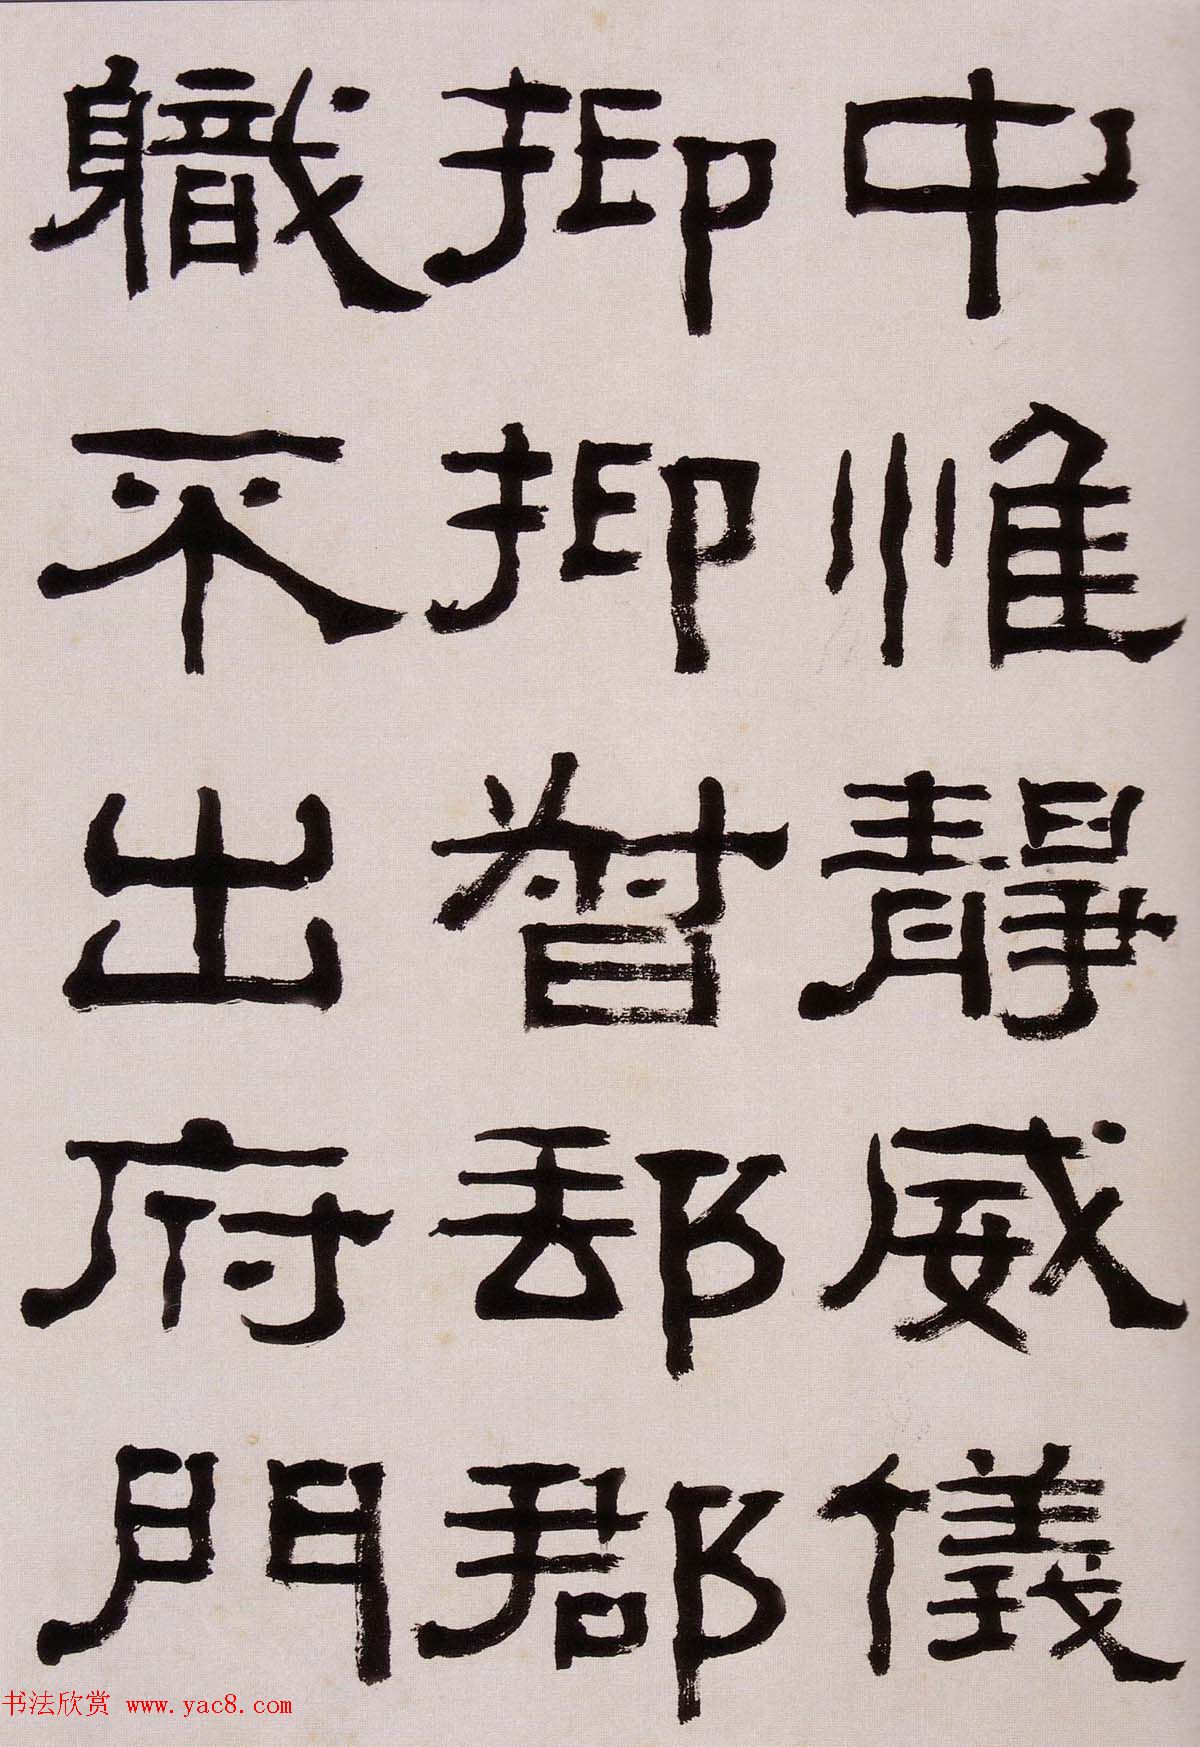 中惟靜威儀
抑抑督郵郡
軄不出府門
书法欣赏 www.yac8.com